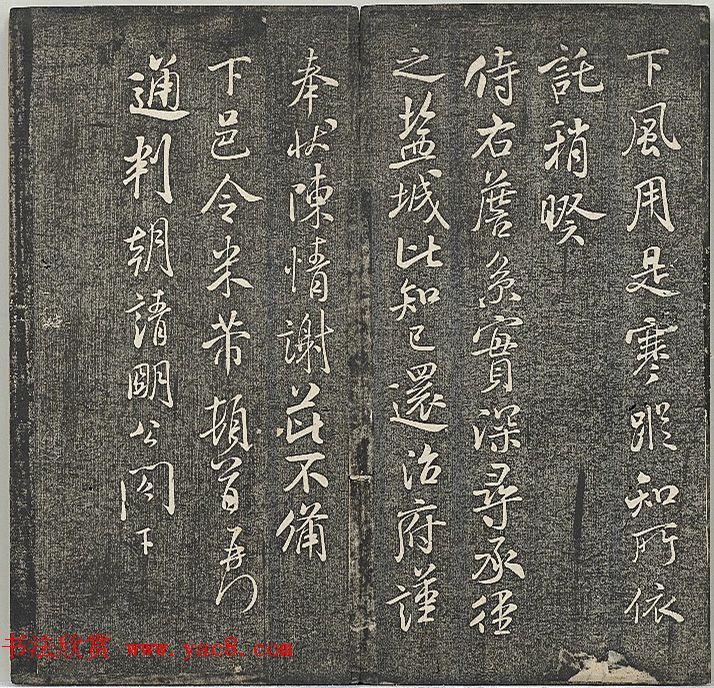 下風用是寒蹤知所依
託稍暌
侍右薝系實深尋承徑
之鹽城比知已還治府謹
奉狀陳情謝茲不備
下邑令米芾頓首再
通判朝請明公閤下
书法欣赏 www.yac8.com